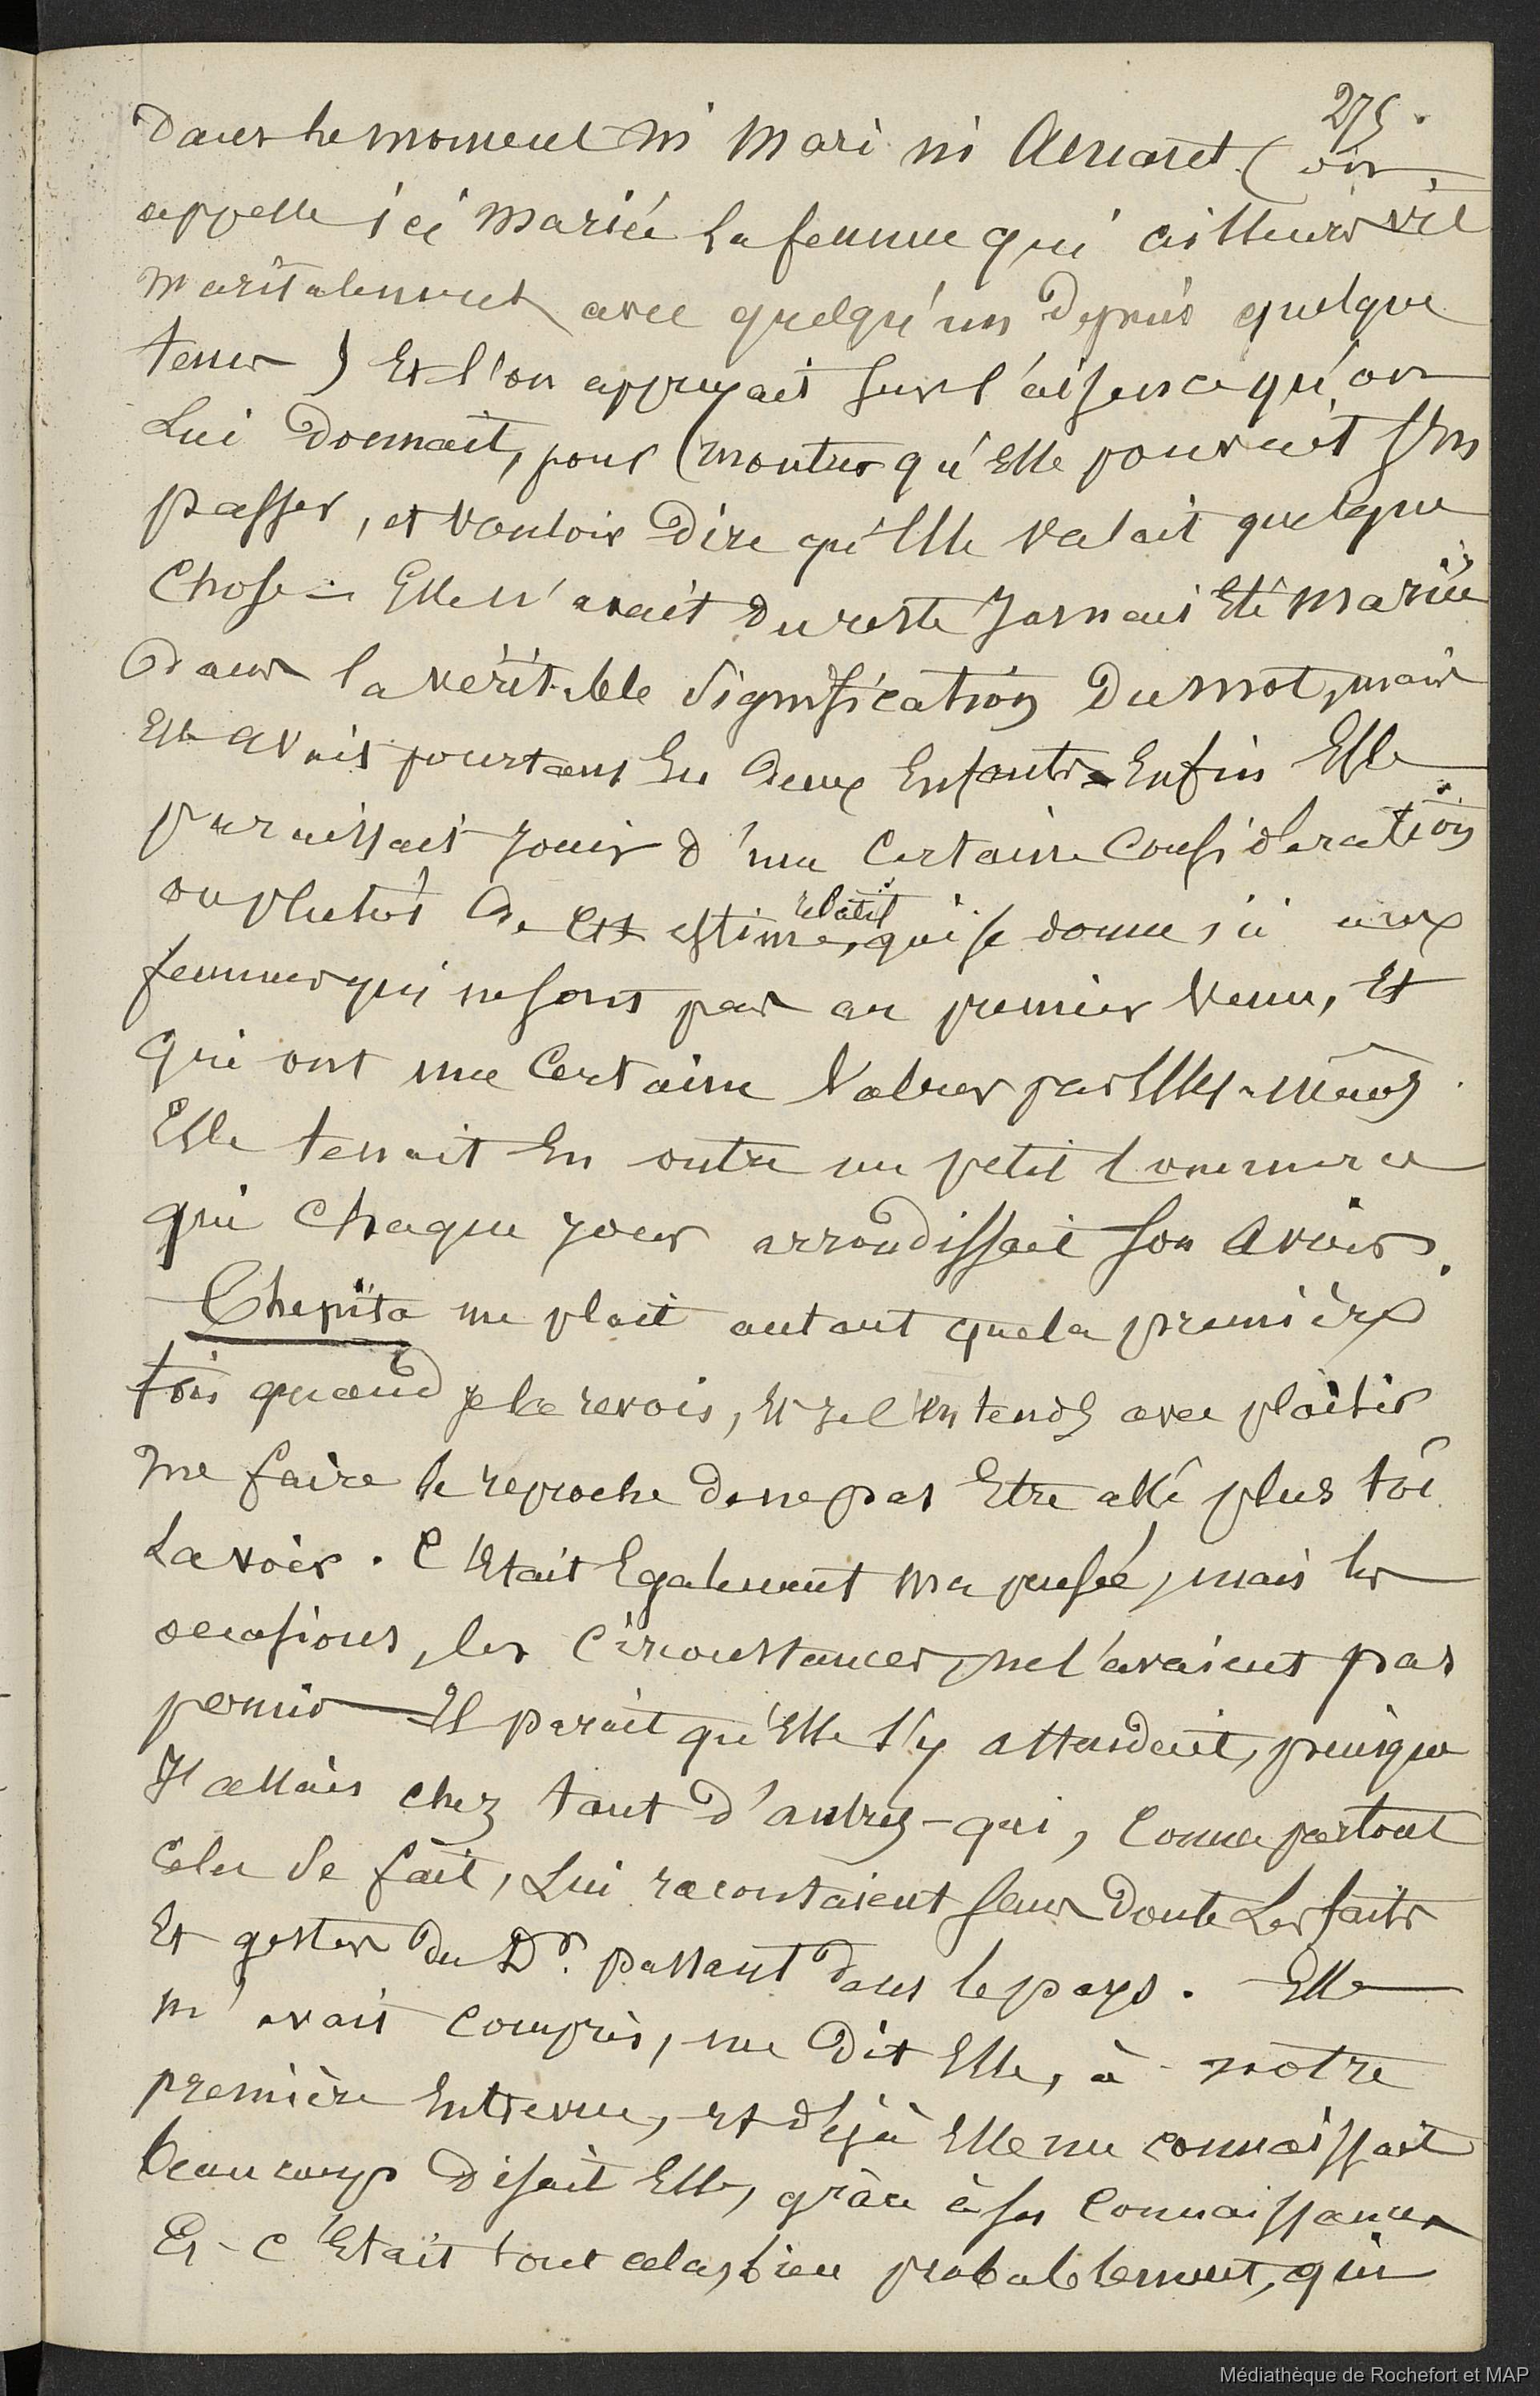 275.
dans le moment ni mari ni amant. (on
appelle ici mariée la femme qui ailleurs vit
maritalement avec quelqu'un depuis quelque
tems) Et l'on appuyait sur l'aisance qu'on
Lui donnait, pour montrer qu'Elle pouvait s'en
passer, et vouloir dire qu'Elle valait quelque
Chose = Elle n'avait du reste Jamais Eté mariée
dans la véritable signification du mot, mais
Elle avait pourtant Eu deux Enfants = Enfin Elle
paraissait Jouir d'une Certaine Considération
ou plutôt de cet estime relatif, qui se donne ici aux
femmes qui ne sont pas au premier Venu, Et
qui ont une Certaine Valeur par Elles-mêmes.
Elle tenait En outre un petit Commerce
qui Chaque Jour arrondissait son avoir.
Chepita me plait autant que la première
fois quand je la revois, Et Je l'Entends avec plaisir
me faire le reproche de ne pas Etre allé plus tôt
La voir. C'Etait Egalement ma pensée, mais les
occasions, les Circonstances, ne l'avaient pas
permis — Il parait qu'Elle s'y attendait, puisque
J'allais chez tant d'autres - qui, Comme partout
Cela se fait, Lui racontaient sans doute Les faits
Et gestes du Dr. passant dans le pays. Elle
m'avait compris, me dit Elle, à notre
première Entrevue, et déjà Elle me connaissait
beaucoup disait Elle, grâce à ses Connaissances
Et - C'Etait tout cela, bien probablement, qui